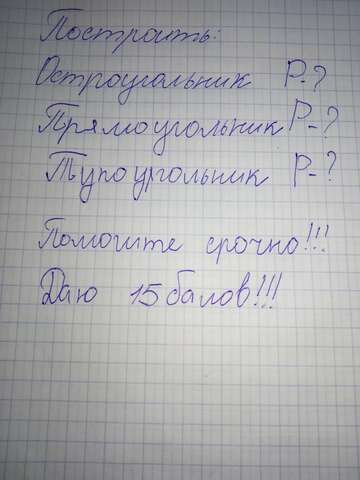 Построить:
Остроугольник P-?
Прямоугольник P-?
Тупоугольник P-?
Помогите срочно!!!
Даю 15 балов!!!